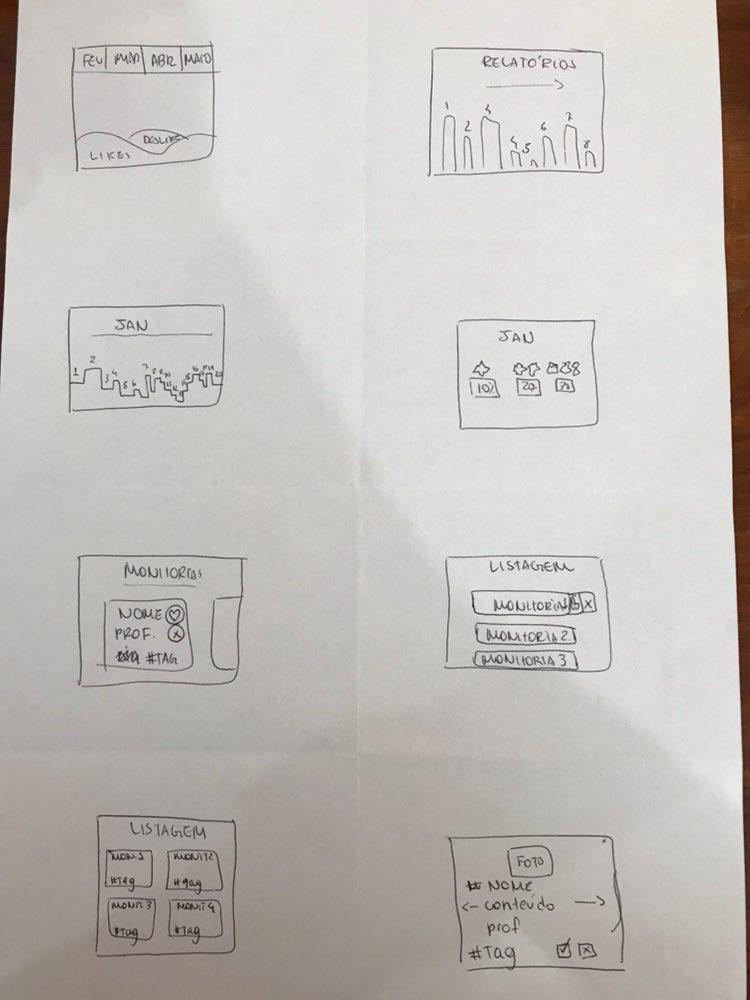 FEV MAR ABR MAIO
DESLIKE
LIKES
RELATÓRIOS
1 2 3 4 5 6 7 8
JAN
1 2 3 4 5 6 7 8 9 10
JAN
10% 20
MONITORIAS
NOME
PROF.
#TAG
LISTAGEM
MONITORIAS X
MONITORIA 2
MONITORIA 3
LISTAGEM
MON.1 MONIT2
#Tag #tag
MONIT.3 MONIT4
#Tag #Tag
FOTO
# NOME
<- conteúdo ->
prof
#Tag